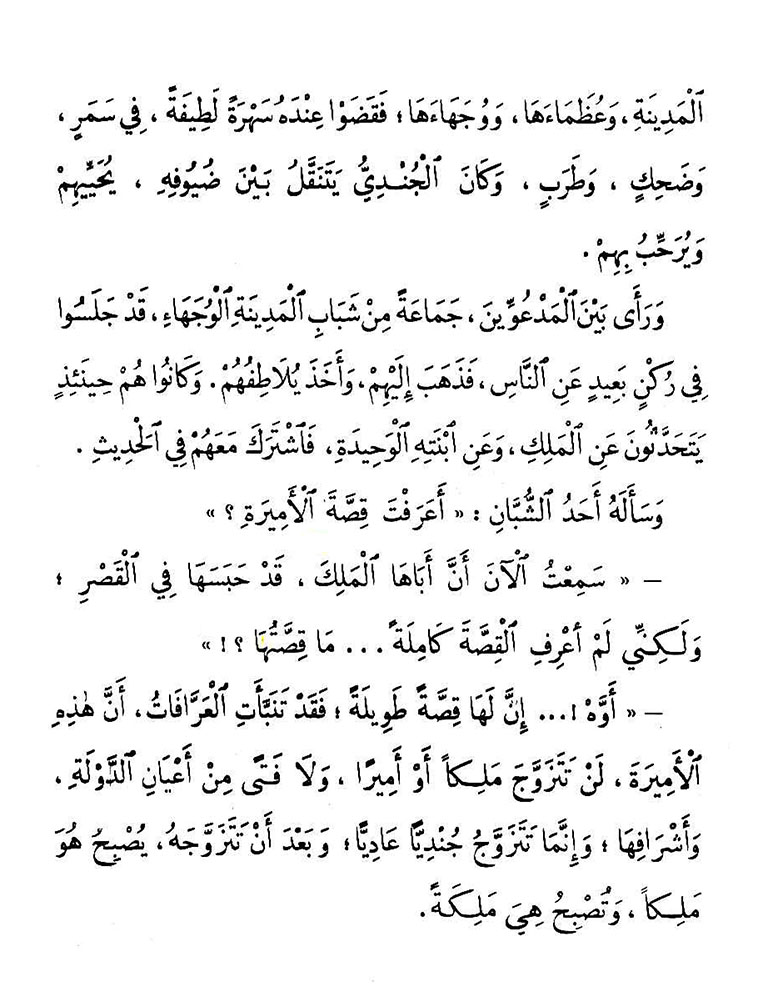 ٱلْمَدِينَةِ، وَعُظَمَاءَهَا، وَوُجَهَاءَهَا؛ فَقَضَوْا عِنْدَهُ سَهْرَةً لَطِيفَةً، فِي سَمَرٍ،
وَضَحِكٍ، وَطَرَبٍ، وَكَانَ ٱلْجُنْدِيُّ يَتَنَقَّلُ بَيْنَ ضُيُوفِهِ، يُحَيِّيهِمْ
وَيُرَحِّبُ بِهِمْ.
وَرَأَى بَيْنَ ٱلْمَدْعُوِّينَ، جَمَاعَةً مِنْ شَبَابِ ٱلْمَدِينَةِ ٱلْوُجَهَاءِ، قَدْ جَلَسُوا
فِي رُكْنٍ بَعِيدٍ عَنِ ٱلنَّاسِ، فَذَهَبَ إِلَيْهِمْ، وَأَخَذَ يُلَاطِفُهُمْ. وَكَانُوا هُمْ حِينَئِذٍ
يَتَحَدَّثُونَ عَنِ ٱلْمَلِكِ، وَعَنِ ٱبْنَتِهِ ٱلْوَحِيدَةِ، فَٱشْتَرَكَ مَعَهُمْ فِي ٱلْحَدِيثِ.
وَسَأَلَهُ أَحَدُ ٱلشُّبَّانِ: «أَعَرَفْتَ قِصَّةَ ٱلْأَمِيرَةِ؟»
– «سَمِعْتُ ٱلْآنَ أَنَّ أَبَاهَا ٱلْمَلِكَ، قَدْ حَبَسَهَا فِي ٱلْقَصْرِ؛
وَلَكِنِّي لَمْ أَعْرِفِ ٱلْقِصَّةَ كَامِلَةً... مَا قِصَّتُهَا؟!»
– «أَوَّهْ!... إِنَّ لَهَا قِصَّةً طَوِيلَةً؛ فَقَدْ تَنَبَّأَتِ ٱلْعَرَّافَاتُ، أَنَّ هٰذِهِ
ٱلْأَمِيرَةَ، لَنْ تَتَزَوَّجَ مَلِكاً أَوْ أَمِيرًا، وَلَا فَتًى مِنْ أَعْيَانِ ٱلدَّوْلَةِ،
وَأَشْرَافِهَا؛ وَإِنَّمَا تَتَزَوَّجُ جُنْدِيًّا عَادِيًّا؛ وَبَعْدَ أَنْ تَتَزَوَّجَهُ، يُصْبِحُ هُوَ
مَلِكاً، وَتُصْبِحُ هِيَ مَلِكَةً.